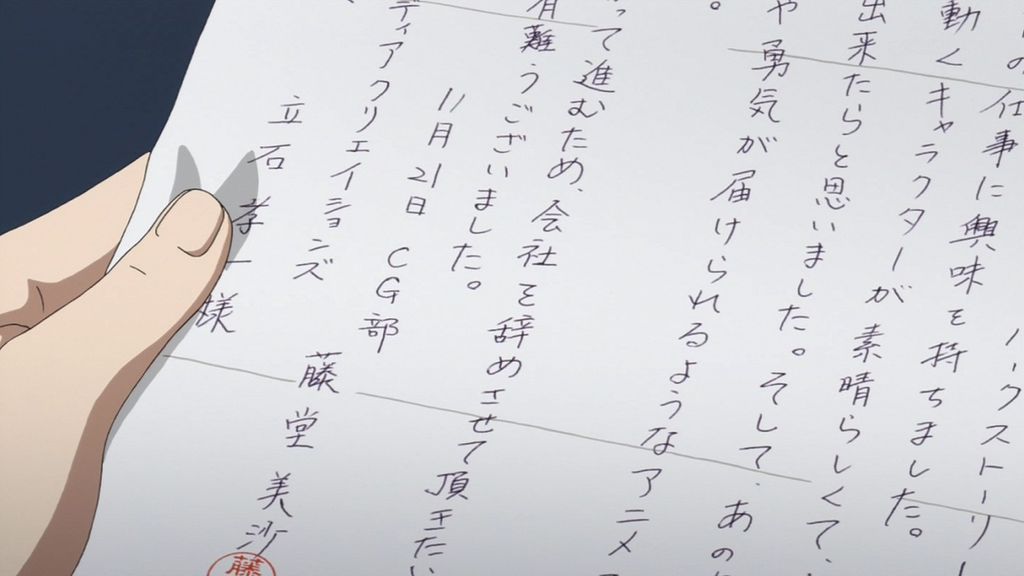 の仕事に興味を持ちました。
ークストーリー
動くキャラクターが素晴らしくて、
出来たらと思いました。そして、あの
や勇気が届けられるようなアニメ
。
って進むため、会社を辞めさせて頂きたい
有難うございました。
11月21日
ディアクリエイションズ CG部
藤堂美沙
藤
立石孝一様